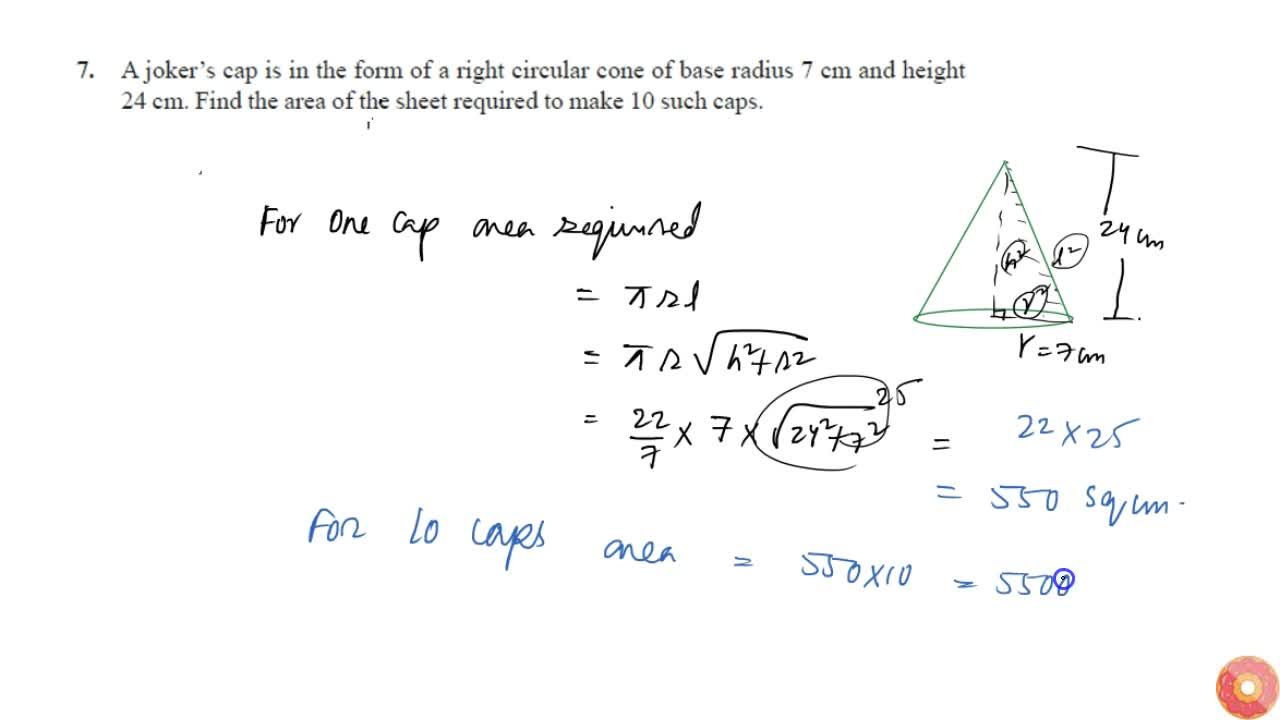 7. A joker's cap is in the form of a right circular cone of base radius 7 cm and height
24 cm. Find the area of the sheet required to make 10 such caps.
For one cap area required
= πrl
= πr√h²+r²
= 22/7 × 7 × √24²+7² 25 = 22×25
= 550 sq cm.
For 10 caps area = 550×10 = 5500
24 cm
h² l²
r²
r = 7 cm